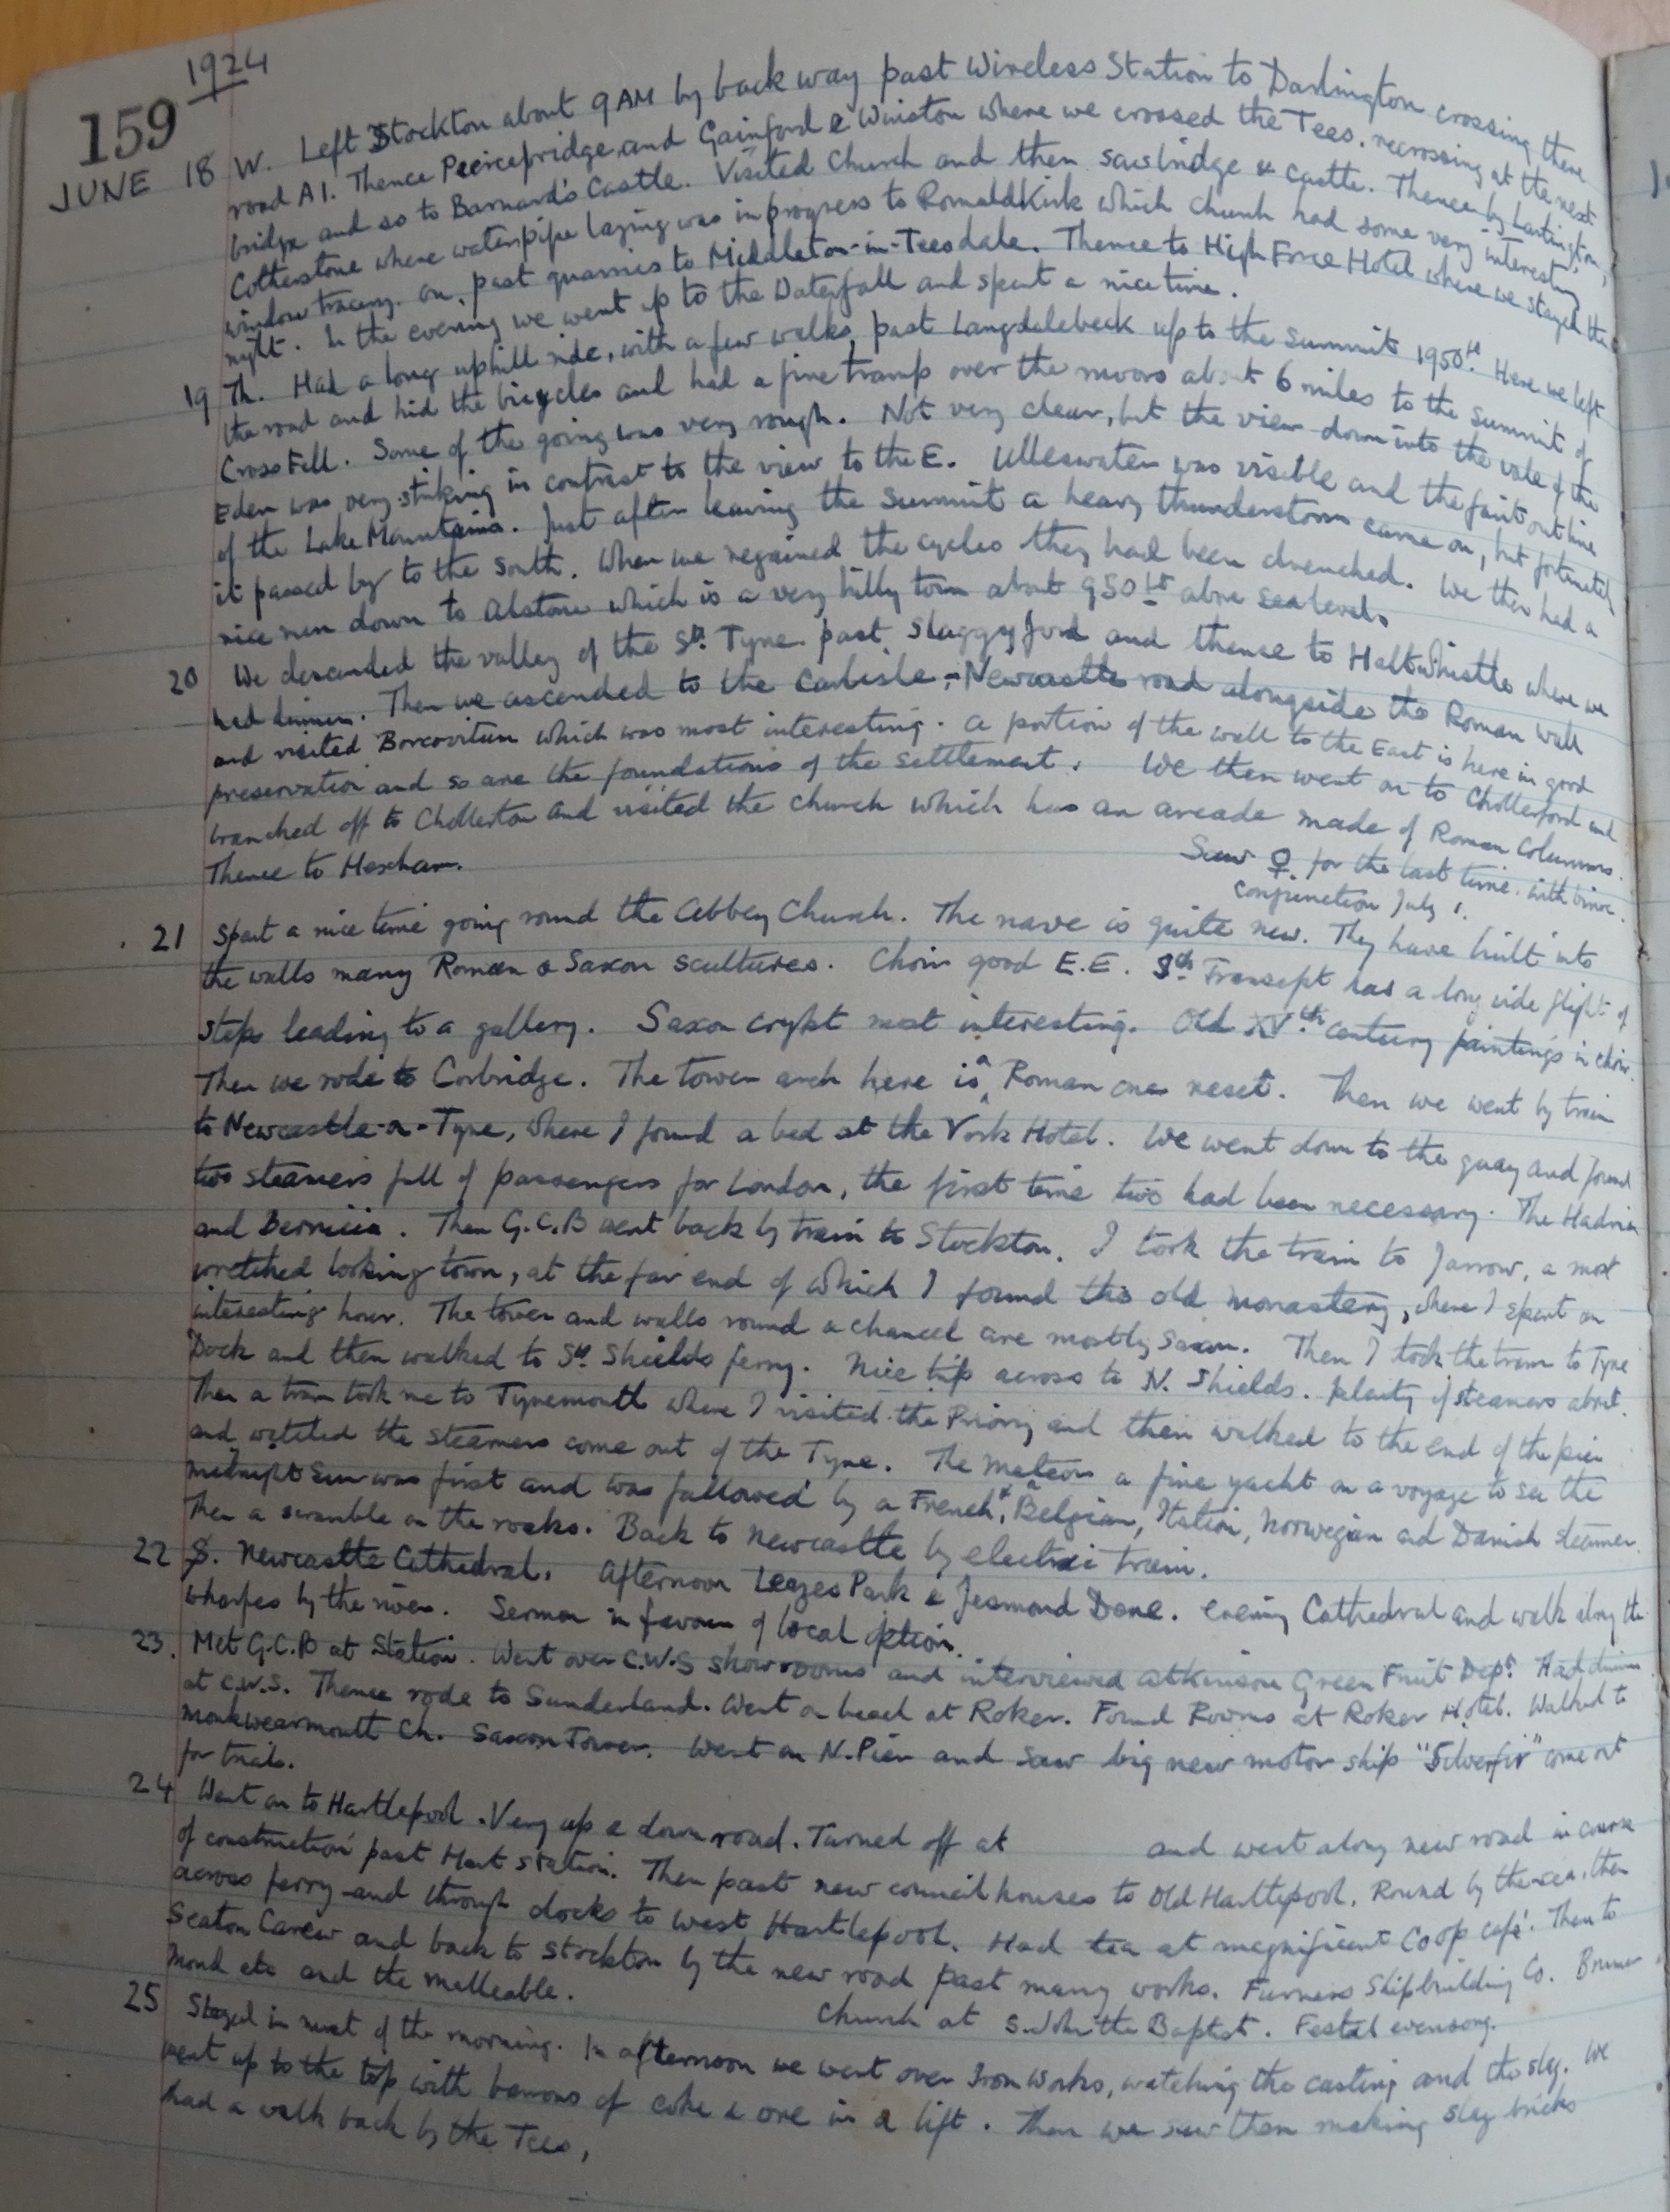 1924
159
JUNE 18 W. Left Stockton about 9 AM by back way past Wireless Station to Darlington crossing there
road A1. Thence Peircebridge and Gainford & Winston where we crossed the Tees. recrossing at the next
bridge and so to Barnard's Castle. Visited Church and then saw bridge & castle. Thence by Lartington,
Cotherstone where waterpipe laying was in progress to RomaldKirk which church had some very interesting
window tracery. on, past quarries to Middleton-in-Teesdale. Thence to High Force Hotel where we stayed the
night. In the evening we went up to the Waterfall and spent a nice time.
19 Th. Had a long uphill ride, with a few walks, past Langdalebeck up to the Summit 1950ft. Here we left
the road and hid the bicycles and had a fine tramp over the moors about 6 miles to the summit of
Cross Fell. Some of the going was very rough. Not very clear, but the view down into the vale of the
Eden was very striking in contrast to the view to the E. Ulleswater was visible and the faint outline
of the Lake Mountains. Just after leaving the Summit a heavy thunderstorm came on, but fortunately
it passed by to the south. When we regained the cycles they had been drenched. We then had a
nice run down to Alstone which is a very hilly town about 950 ft above sea level.
20 We descended the valley of the Sth. Tyne past Slaggyford and thence to Haltwhistle where we
had dinner. Then we ascended to the Carlisle-Newcastle road alongside the Roman Wall
and visited Borcovitum which was most interesting. A portion of the wall to the East is here in good
preservation and so are the foundations of the settlement. We then went on to Chollerford and
branched off to Chollerton and visited the church which has an arcade made of Roman Columns.
Thence to Hexham.
Saw ♀ for the last time with binoc.
conjunction July 1.
21 Spent a nice time going round the Abbey Church. The nave is quite new. They have built into
the walls many Roman & Saxon scultures. Choir good E.E. Sth Transept has a long wide flight of
steps leading to a gallery. Saxon crypt most interesting. Old XVth century paintings in choir.
Then we rode to Corbridge. The tower arch here is a Roman one reset. Then we went by train
to Newcastle-o-Tyne, where I found a bed at the York Hotel. We went down to the quay and found
two steamers full of passengers for London, the first time two had been necessary. The Hadrian
and Bernicia. Then G.C.B went back by train to Stockton. I took the train to Jarrow, a most
wretched looking town, at the far end of which I found the old monastery, where I spent an
interesting hour. The tower and walls round a chancel are mostly Saxon. Then I took the tram to Tyne
Dock and then walked to Sth Shields ferry. Nice trip across to N. Shields. plenty of steamers about.
Then a tram took me to Tynemouth where I visited the Priory and then walked to the end of the pier
and watched the steamers come out of the Tyne. The Meteor a fine yacht on a voyage to see the
midnight Sun was first and was followed by a French, & a Belgian, Italian, Norwegian and Danish steamer.
Then a scramble on the rocks. Back to Newcastle by electric train.
22 S. Newcastle Cathedral. Afternoon Leazes Park & Jesmond Dene. evening Cathedral and walk along the
wharfes by the river. Sermon in favour of local option.
23. Met G.C.B at Station. Went over C.W.S showrooms and interviewed Atkinson Green Fruit Dept. Had dinner
at C.W.S. Thence rode to Sunderland. Went on beach at Roker. Found Rooms at Roker Hotel. Walked to
Monkwearmouth Ch. Saxon Tower. Went on N. Pier and saw big new motor ship "Silverfir" come out
for trials.
24 Went on to Hartlepool. Very up & down road. Turned off at and went along new road in course
of construction past Hart Station. Then past new council houses to Old Hartlepool. Round by the sea, then
across ferry and through docks to West Hartlepool. Had tea at magnificent Coop café. Then to
Seaton Carew and back to Stockton by the new road past many works. Furness Shipbuilding Co. Brunner
Mond etc and the Malleable. Church at S. John the Baptist. Festal evensong.
25 Stayed in most of the morning. In afternoon we went over Iron Works, watching the casting and the slag. We
went up to the top with barrows of coke & ore in a lift. Then we saw them making slag bricks
had a walk back by the Tees,